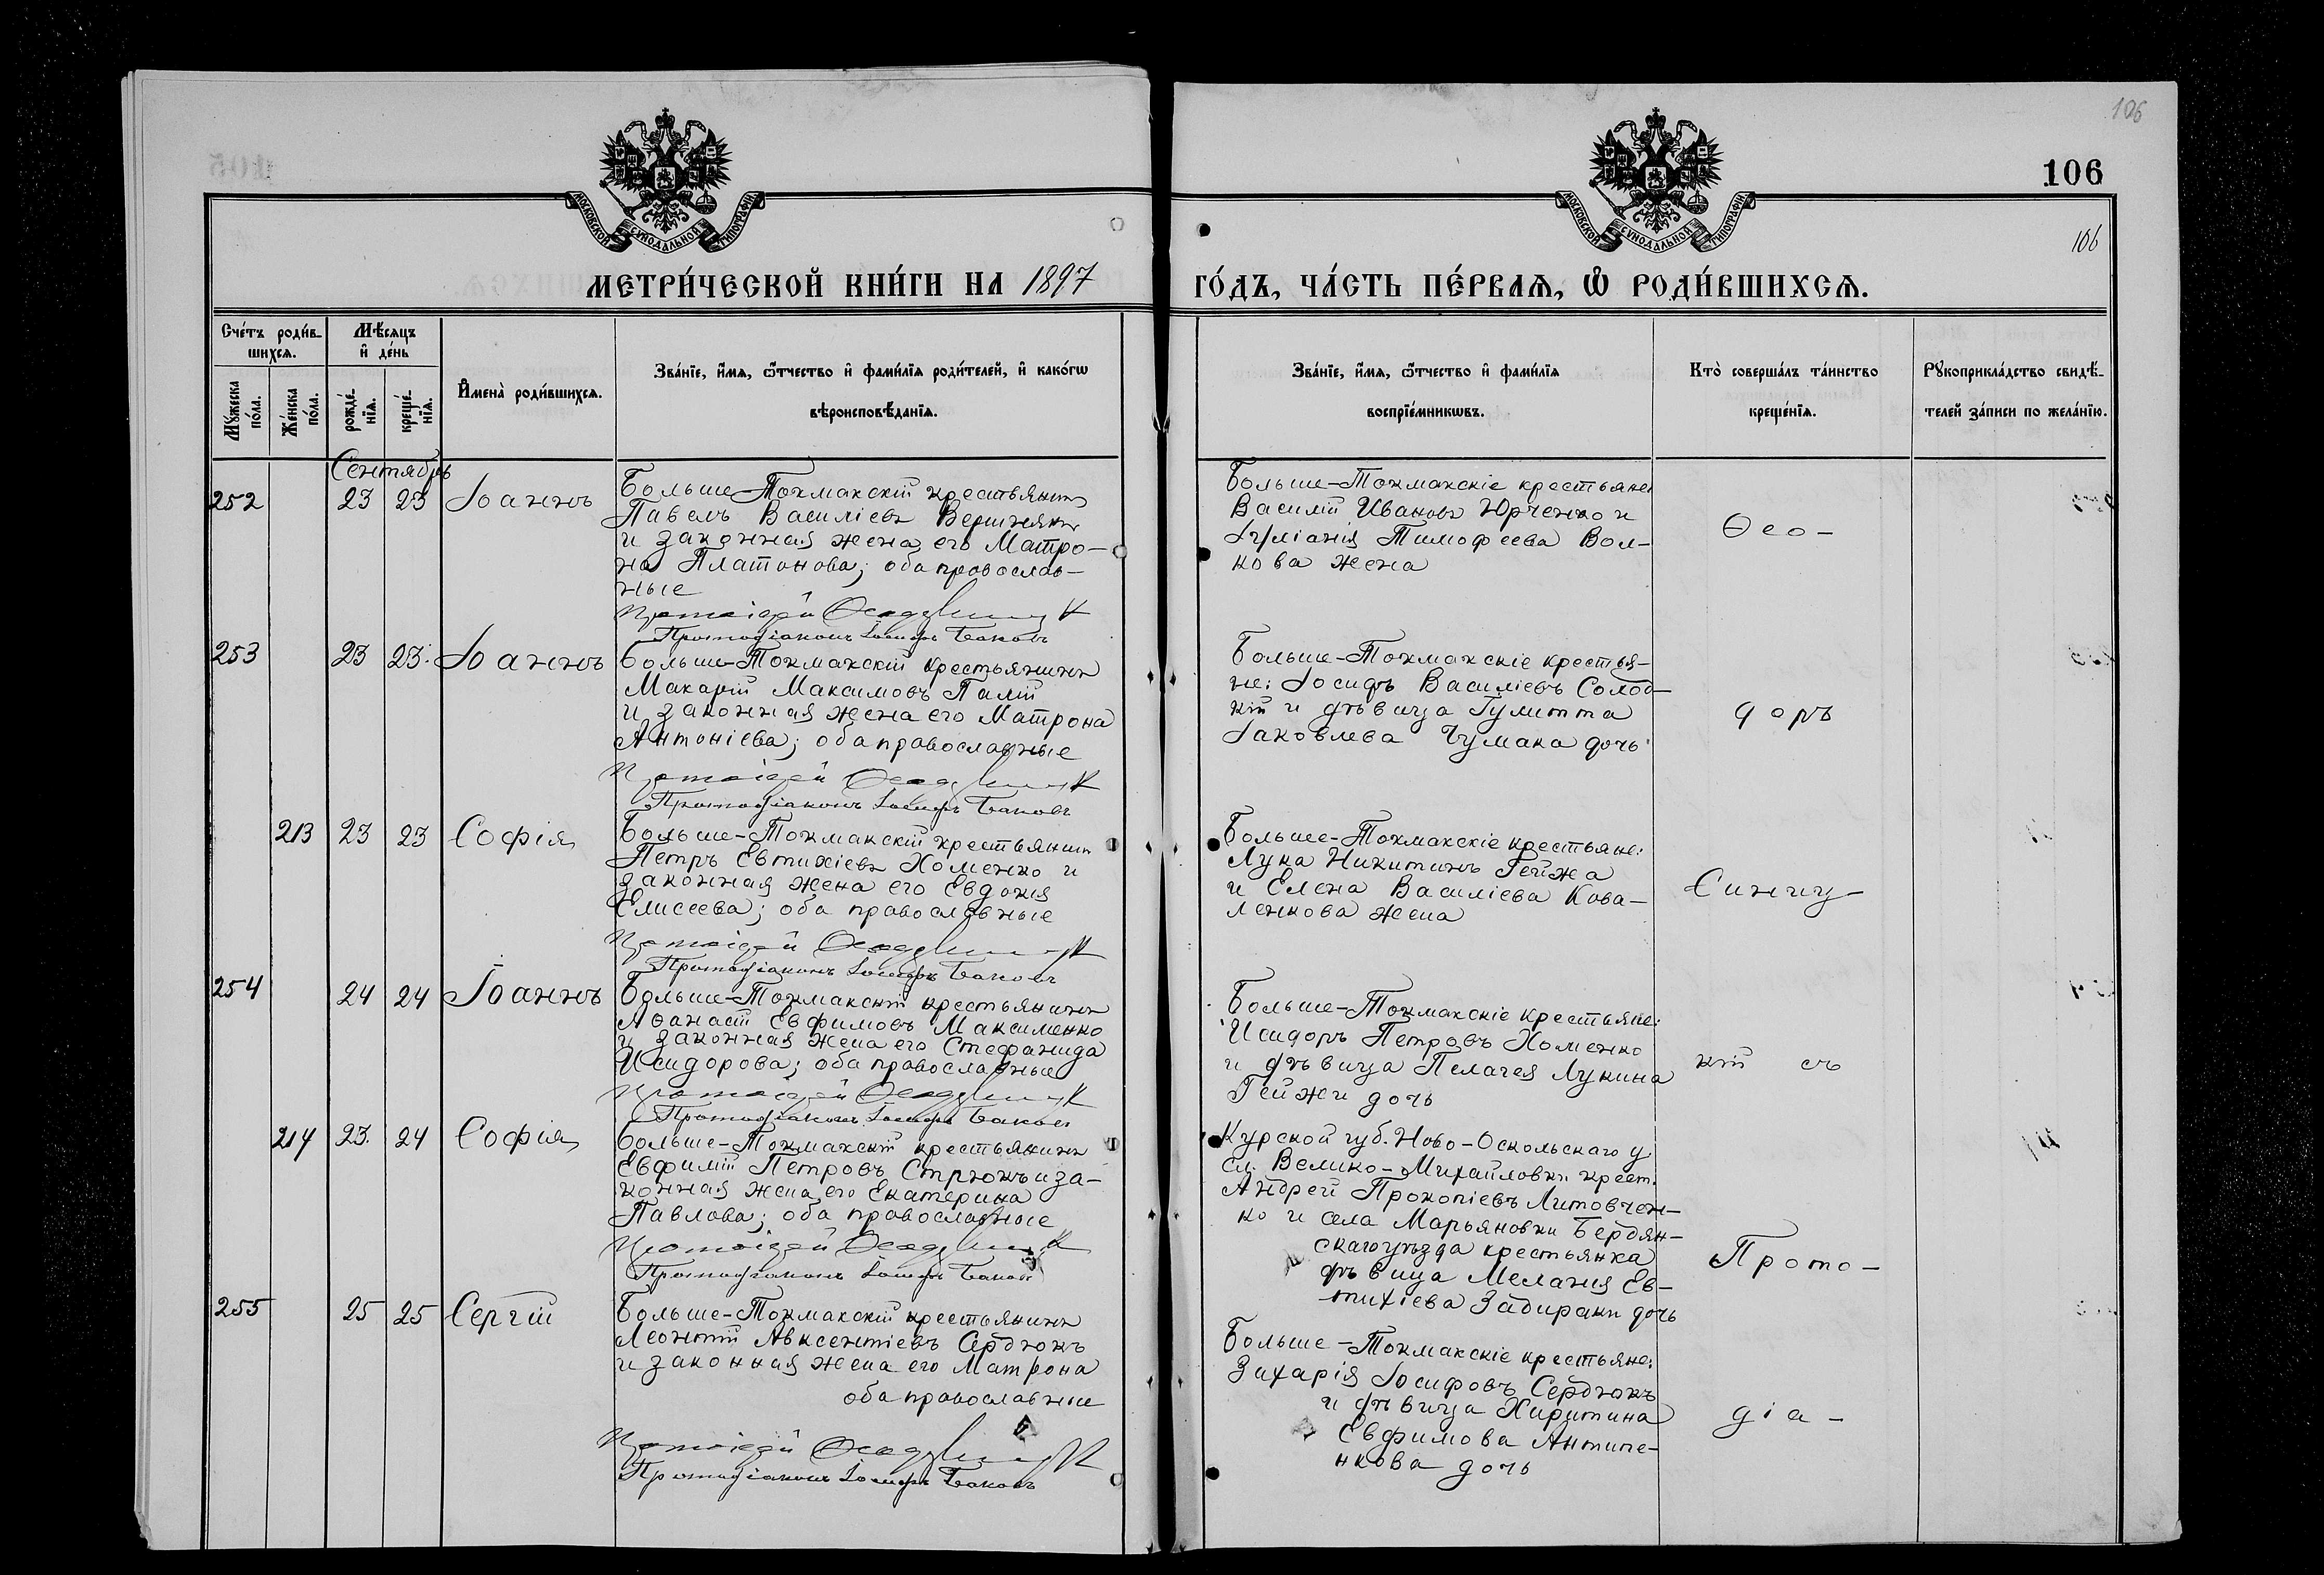 106
106
106
МОСКОВСКОЙ СѴНОДАЛЬНОЙ ТИПОГРАФІИ
МОСКОВСКОЙ СѴНОДАЛЬНОЙ ТИПОГРАФІИ
МЕТРИ́ЧЕСКОЙ КНИ́ГИ НА 1897 ГО́ДЪ, ЧА́СТЬ ПЕ́РВАѦ, Ѡ҆ РОДИ́ВШИХСѦ.
Счéтъ роди́в-
шихсѧ.
Мꙋ́жеска
по́ла.
Же́нска
по́ла.
Мѣ́сѧцъ
и҆ де́нь
рожде́-
нїѧ.
креще́-
нїѧ.
И҆мена̀ роди́вшихсѧ.
Зва́нїе, и҆́мѧ, ѻ҆́тчество и҆ фами́лїѧ роди́телей, и҆ како́гѡ
вѣроисповѣ́данїѧ.
Зва́нїе, и҆́мѧ, ѻ҆́тчество и҆ фами́лїѧ
воспрїе́мникѡвъ.
Кто̀ соверша́лъ та́инство
креще́нїѧ.
Рꙋкоприкла́дство свидѣ́-
телей за́писи по жела́нїю.
Сентябрь
252 23 23 Іоаннъ
Больше-Токмакскій крестьянинъ
Павелъ Василіевъ Вершнякъ
и законная жена его Матро-
на Платонова; оба православ-
ные
Протоіерей
Протодіаконъ Іосифъ Баковъ
Больше-Токмакскіе крестьяне:
Василій Ивановъ Юрченко и
Іуліанія Тимофеева Вол-
кова жена
Ѳео-
253 23 23. Іоаннъ
Больше-Токмакскій крестьянинъ
Макарій Максимовъ Палій
и законная жена его Матрона
Антоніева; оба православные
Протоіерей
Протодіаконъ Іосифъ Баковъ
Больше-Токмакскіе крестья-
не: Іосифъ Василіевъ Солод-
кій и дѣвица Іулитта
Іаковлева Чумака дочь
доръ
213 23 23 Софія
Больше-Токмакскій крестьянинъ
Петръ Евтихіевъ Хоменко и
законная жена его Евдокія
Елисеева; оба православные
Протоіерей
Протодіаконъ Іосифъ Баковъ
Больше-Токмакскіе крестьяне:
Лука Никитинъ Гейжа
и Елена Василіева Кова-
ленкова жена
Синиц-
254 24 24 Іоаннъ
Больше-Токмакскій крестьянинъ
Аѳанасій Евфимовъ Максименко
и законная жена его Стефанида
Исидорова; оба православные
Протоіерей
Протодіаконъ Іосифъ Баковъ
Больше-Токмакскіе крестьяне:
Исидоръ Петровъ Хоменко
и дѣвица Пелагея Лукина
Гейжи дочь
кій съ
214 23. 24 Софія
Больше-Токмакскій крестьянинъ
Евфимій Петровъ Стрюкъ и за-
конная жена его Екатерина
Павлова; оба православные
Протоіерей
Протодіаконъ Іосифъ Баковъ
Курской губ. Ново-Оскольскаго у.
сл. Велико-Михайловки крест.
Андрей Прокопіевъ Литовчен-
ко и села Марьяновки Бердян-
скаго уѣзда крестьянка
дѣвица Меланія Ев-
тихіева Задираки дочь
Прото-
255 25 25 Сергій
Больше-Токмакскій крестьянинъ
Леонтій Авксентіевъ Сердюкъ
и законная жена его Матрона
оба православные
Протоіерей
Протодіаконъ Іосифъ Баковъ
Больше-Токмакскіе крестьяне:
Захарія Іосифовъ Сердюкъ
и дѣвица Харитина
Евфимова Антипе-
нкова дочь
діа-